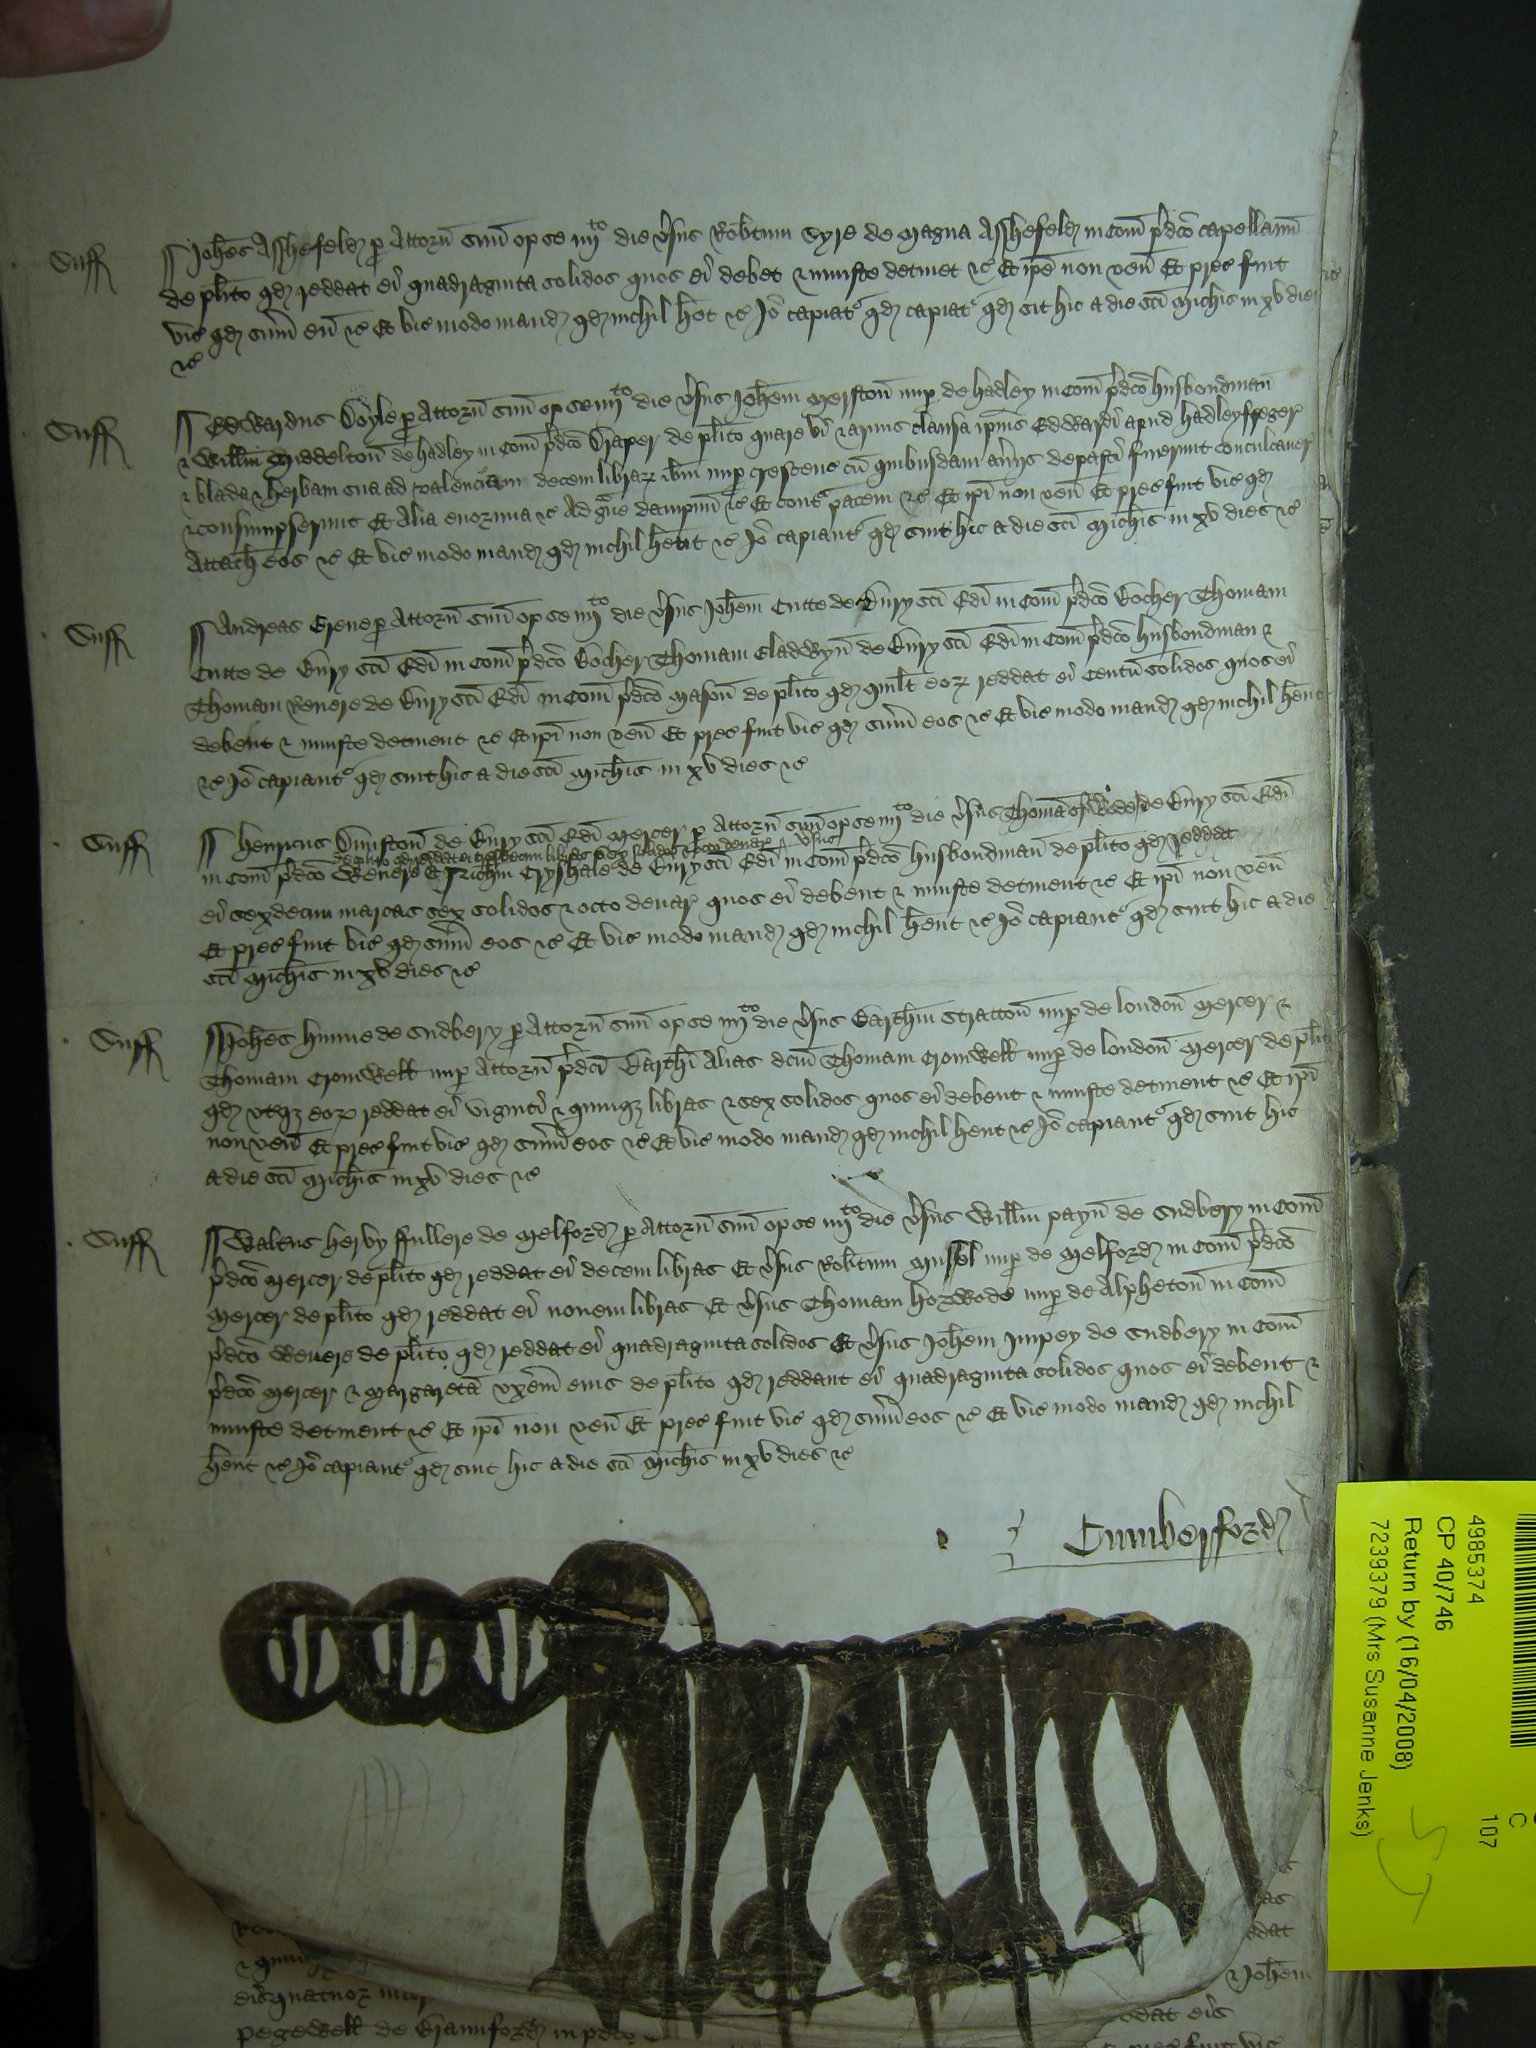 Suff Joh̄es Asshefeld p Attorn̄ suū op se iiijto die v̄sus Rob̄tum Syre de Magna Asshefeld in Com̄ p̄dc̄o capellanū
de pl̄ito qd reddat ei quadraginta solidos quos ei debet & iniuste detinet &c Et ip̄e non ven̄ Et prec̄ fuit
vic̄ qd sum̄ eū &c Et vic̄ modo mand qd nichil h̄et &c Jo capiatr qd capiatr qd sit hic a die sc̄i Mich̄is in xv dies
&c
Suff Edwardus Doyle p Attorn̄ suū op se iiijto die v̄sus Joh̄em Merston̄ nup de Hadley in Com̄ p̄dc̄o husbondman̄
& Will̄m Middelton̄ de Hadley in Com̄ p̄dc̄o Draper de pl̄ito quare vi & armis clausa ip̄ius Edwardi apud Hadley freger
& blada & herbam sua ad valenciam decem librar ib̄m nup crescenc̄ cū quibusdam aūijs depasti fuerunt conculcauer
& consumpserunt Et Alia enormia &c Ad g̃ue dampnū &c Et cont̃ pacem &c Et ip̄i non ven̄ Et prec̄ fuit vic̄ qd
Attach̄ eos &c Et vic̄ modo mand qd nichil h̄ent &c Jo capiantr qd sint hic a die sc̄i Mich̄is in xv dies &c
Suff Andreas Grene p Attorn̄ suū op se iiijto die v̄sus Joh̄em Cutte de Bury sc̄i Edi in Com̄ p̄dc̄o Bocher Thomam
Cutte de Bury sc̄i Edi in Com̄ p̄dc̄o Bocher Thomam Gladwyn̄ de Bury sc̄i Edi in Com̄ p̄dc̄o husbondman &
Thomam Revere de Bury sc̄i Edi in Com̄ p̄dc̄o Mason̄ de pl̄ito qd quil̄t eor reddat ei Centū solidos quos ei
debent & iniuste detinent &c Et ip̄i non ven̄ Et prec̄ fuit vic̄ qd sum̄ eos &c Et vic̄ modo mand qd nichil h̄ent
&c Jo capiantr qd sint hic a die sc̄i Mich̄is in xv dies &c
Suff Henricus Dunston̄ de Bury sc̄i Edi Mercer p Attorn̄ suū op se iiijto die v̄sus Thomā de Bury sc̄i Edi
de pl̄ito qd reddat ei tresdecim libras sex solidos & octo denar & v̄sus
in Com̄ p̄dc̄o Wevere Et Ric̄um Cryshale de Bury sc̄i Edi in Com̄ p̄dc̄o husbondman̄ de pl̄ito qd reddat
ei sexdecim marcas sex solidos & octo denar quos ei debent & iniuste detinent &c Et ip̄i non ven̄
Et prec̄ fuit vic̄ qd sum̄ eos &c Et vic̄ modo mand qd nichil h̄ent &c Jo capiantr qd sint hic a die
sc̄i Mich̄is in xv dies &c
Suff Joh̄es Hunne de Sudbery p Attorn̄ suū op se iiijto die v̄sus Barth̄m Stratton̄ nup de London̄ Mercer &
Thomam Cromwell nup Attorn̄ p̄dc̄i Barth̄i Alias dc̄um Thomam Cromwell nup de London̄ Mercer de pl̄ito
qd vt̃q eor reddat ei viginti & quinq libras & sex solidos quos ei debent & iniuste detinent &c Et ip̄i
non ven̄ Et prec̄ fuit vic̄ qd sum̄ eos &c Et vic̄ modo mand qd nichil h̄ent &c Jo capiantr qd sint hic
a die sc̄i Mich̄is in xv dies &c
Suff Walt̄us Herby ffullere de Melford p Attorn̄ suū op se iiijto die v̄sus Will̄m Payn̄ de Sudbery in Com̄
p̄dc̄o Mercer de pl̄ito qd reddat ei decem libras Et v̄sus Rob̄tum nup de Melford in Com̄ p̄dc̄o
Mercer de pl̄ito qd reddat ei novem libras Et v̄sus Thomam Horwode nup de Alpheton̄ in Com̄
p̄dc̄o Wevere de pl̄ito qd reddat ei quadraginta solidos Et v̄sus Joh̄em Impey de Sudbery in Com̄
p̄dc̄o Mercer & Margaretā vx̄em eius de pl̄ito qd reddant ei quadraginta solidos quos ei debent &
iniuste detinent &c Et ip̄i non ven̄ Et prec̄ fuit vic̄ qd sum̄ eos &c Et vic̄ modo mand qd nichil
h̄ent &c Jo capiantr qd sint hic a die sc̄i Mich̄is in xv dies &c
Cumberford
ei quatuor
pegewell de in p̄dc̄o
odat
& Joh̄em
odat ei
C
107
4985374
CP 40/746
Return by (16/04/2008)
7239379 (Mrs Susanne Jenks)